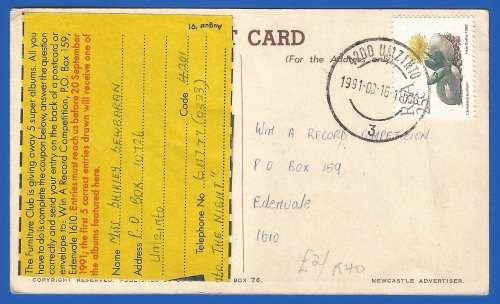 The Furniture Club is giving away 5 super albums. All you
have to do is complete the coupon below, answer the question
correctly and send your entry on the back of a postcard or
envelope to: Win A Record Competition, P.O. Box 159,
Edenvale 1610. Entries must reach us before 20 September
1991; the first 5 correct entries drawn will receive one of
the albums featured here.
Name MISS SHIRLEY
Address P.O BOX 10726
UMZINTO
Code 4201
Telephone No
THE NIGHT"
August '91
T CARD
(For the Address only)
4200 UMZINTO
1991-09-16
3
WIN A RECORD COMPETITION
P O BOX 159
Edenvale
1610
£2/ R40
COPYRIGHT RESERVED. PUBLISHED BY
BOX 76.
NEWCASTLE ADVERTISER.